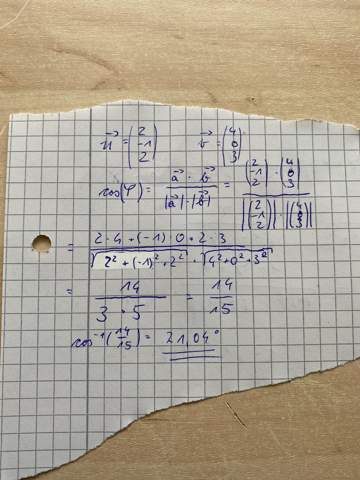 u⃗ = (2 -1 2) v⃗ = (4 0 3)
cos(φ) = (a⃗ · b⃗) / (|a⃗| · |b⃗|) = ((2 -1 2) · (4 0 3)) / (|(2 -1 2)| · |(4 0 3)|)
= (2 · 4 + (-1) · 0 + 2 · 3) / (√(2² + (-1)² + 2²) · √(4² + 0² + 3²))
= 14 / (3 · 5) = 14/15
cos⁻¹(14/15) = 21,04°